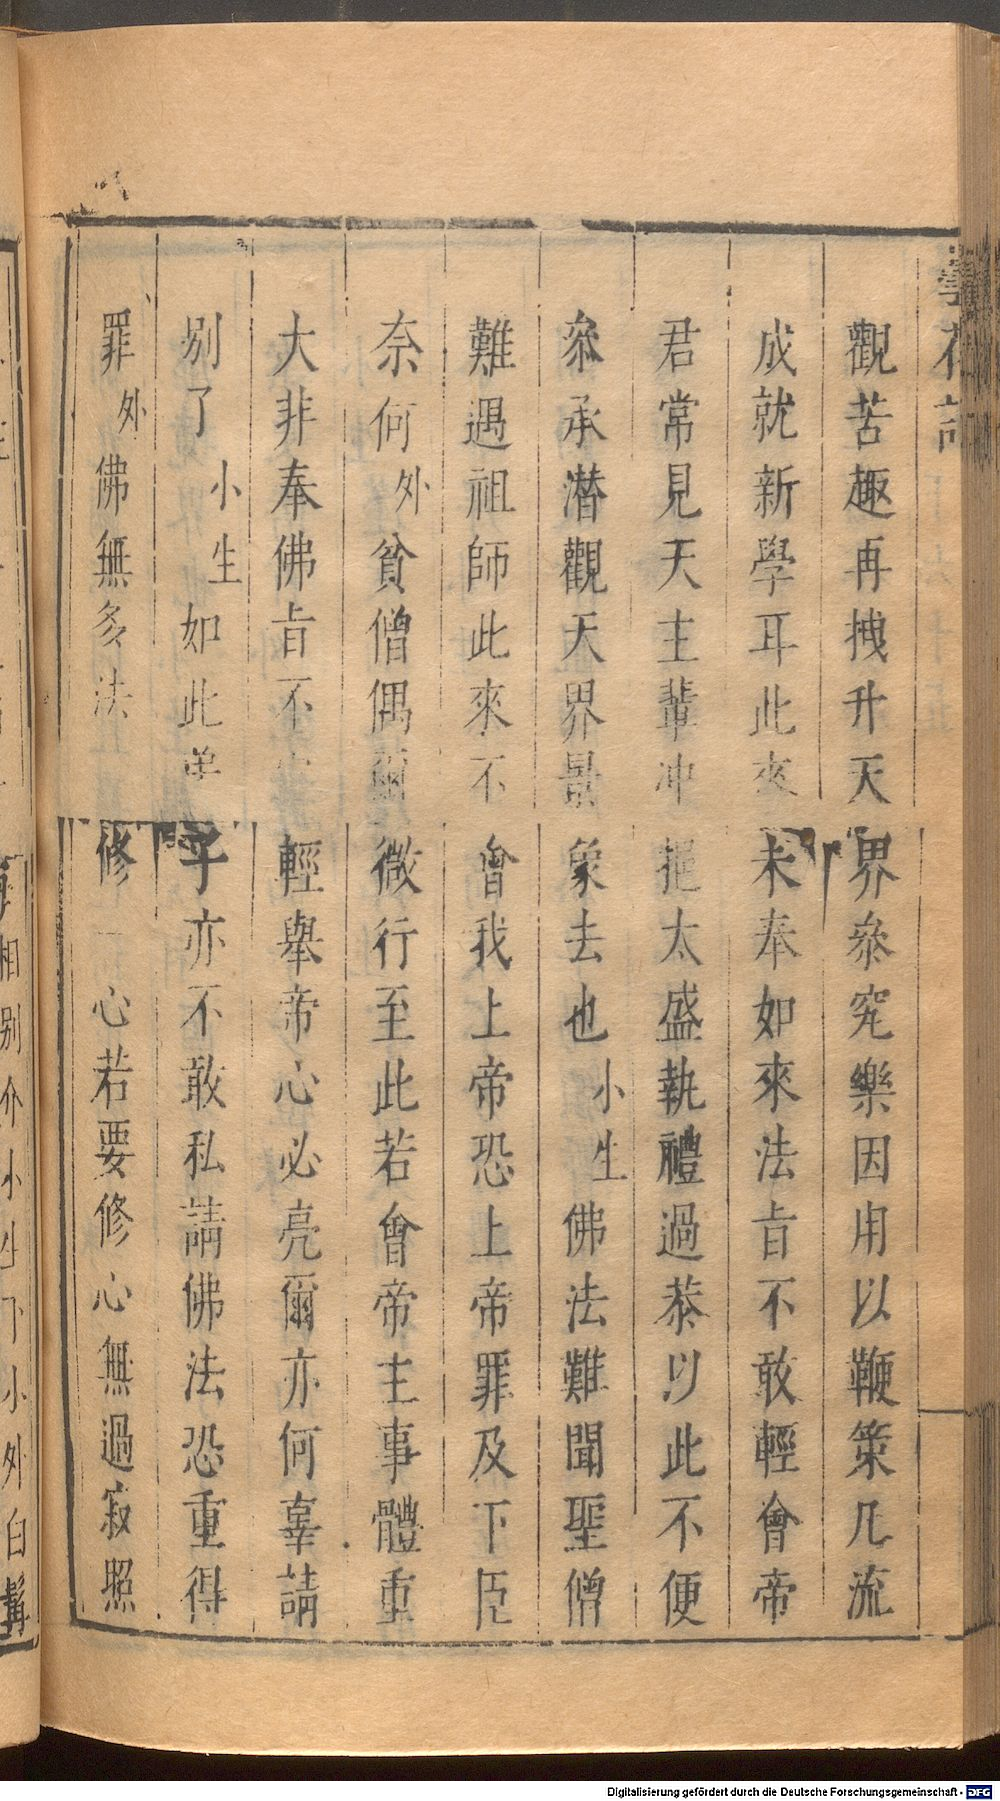 觀苦趣再拽升天界叅究樂因用以鞭策凡流
成就新學耳此來未奉如來法旨不敢輕會帝
君常見天主輩冲挹太盛執禮過恭以此不便
叅承潜觀天界景象去也小生佛法難聞聖僧
難遇祖師此來不會我上帝恐上帝罪及下臣
奈何外貧僧偶爾微行至此若會帝主事體重
大非奉佛旨不輕舉帝心必亮爾亦何辜請
别了小生如此弟子亦不敢私請佛法恐重得
罪外佛無多法修一心若要修心無過寂照
相别介小生下小外白髯
Digitalisierung gefördert durch die Deutsche Forschungsgemeinschaft - DFG